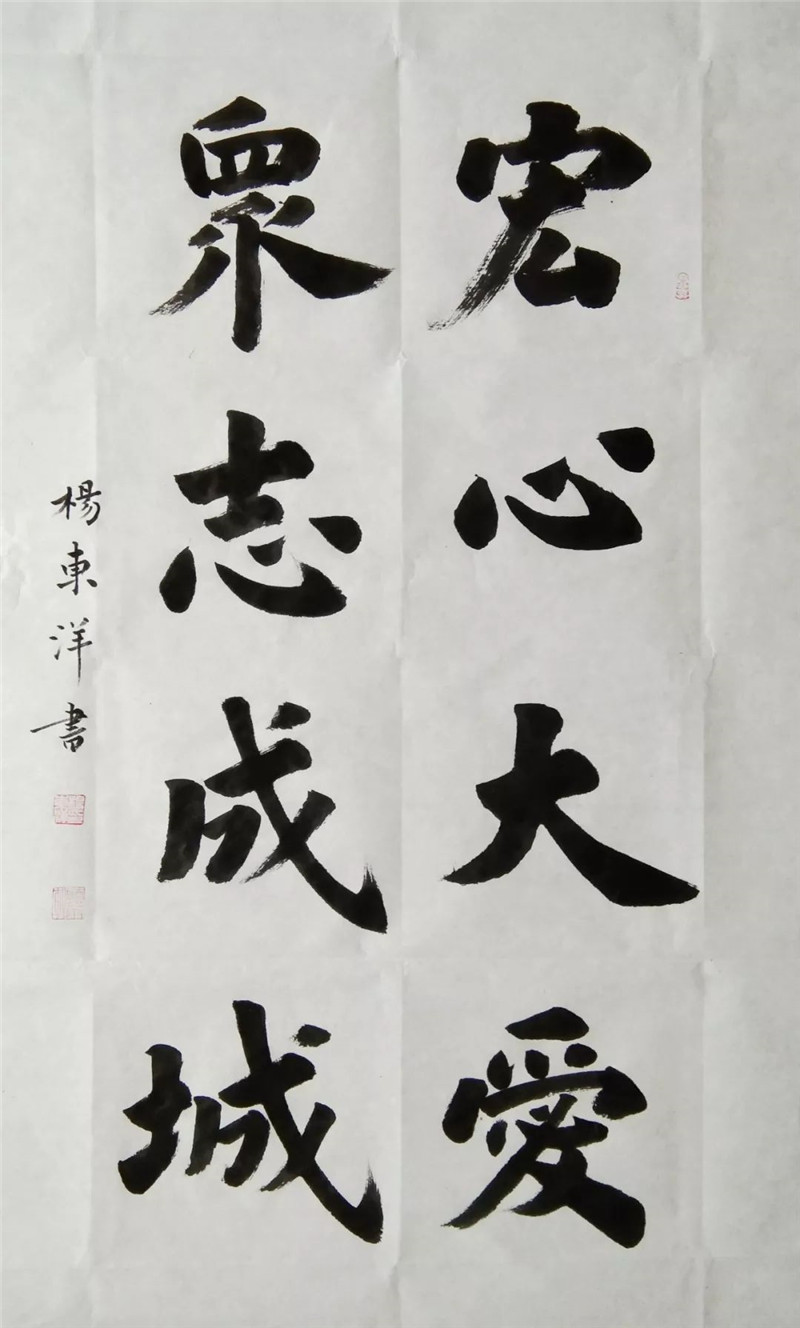 宏心大愛
眾志成城
楊東洋書